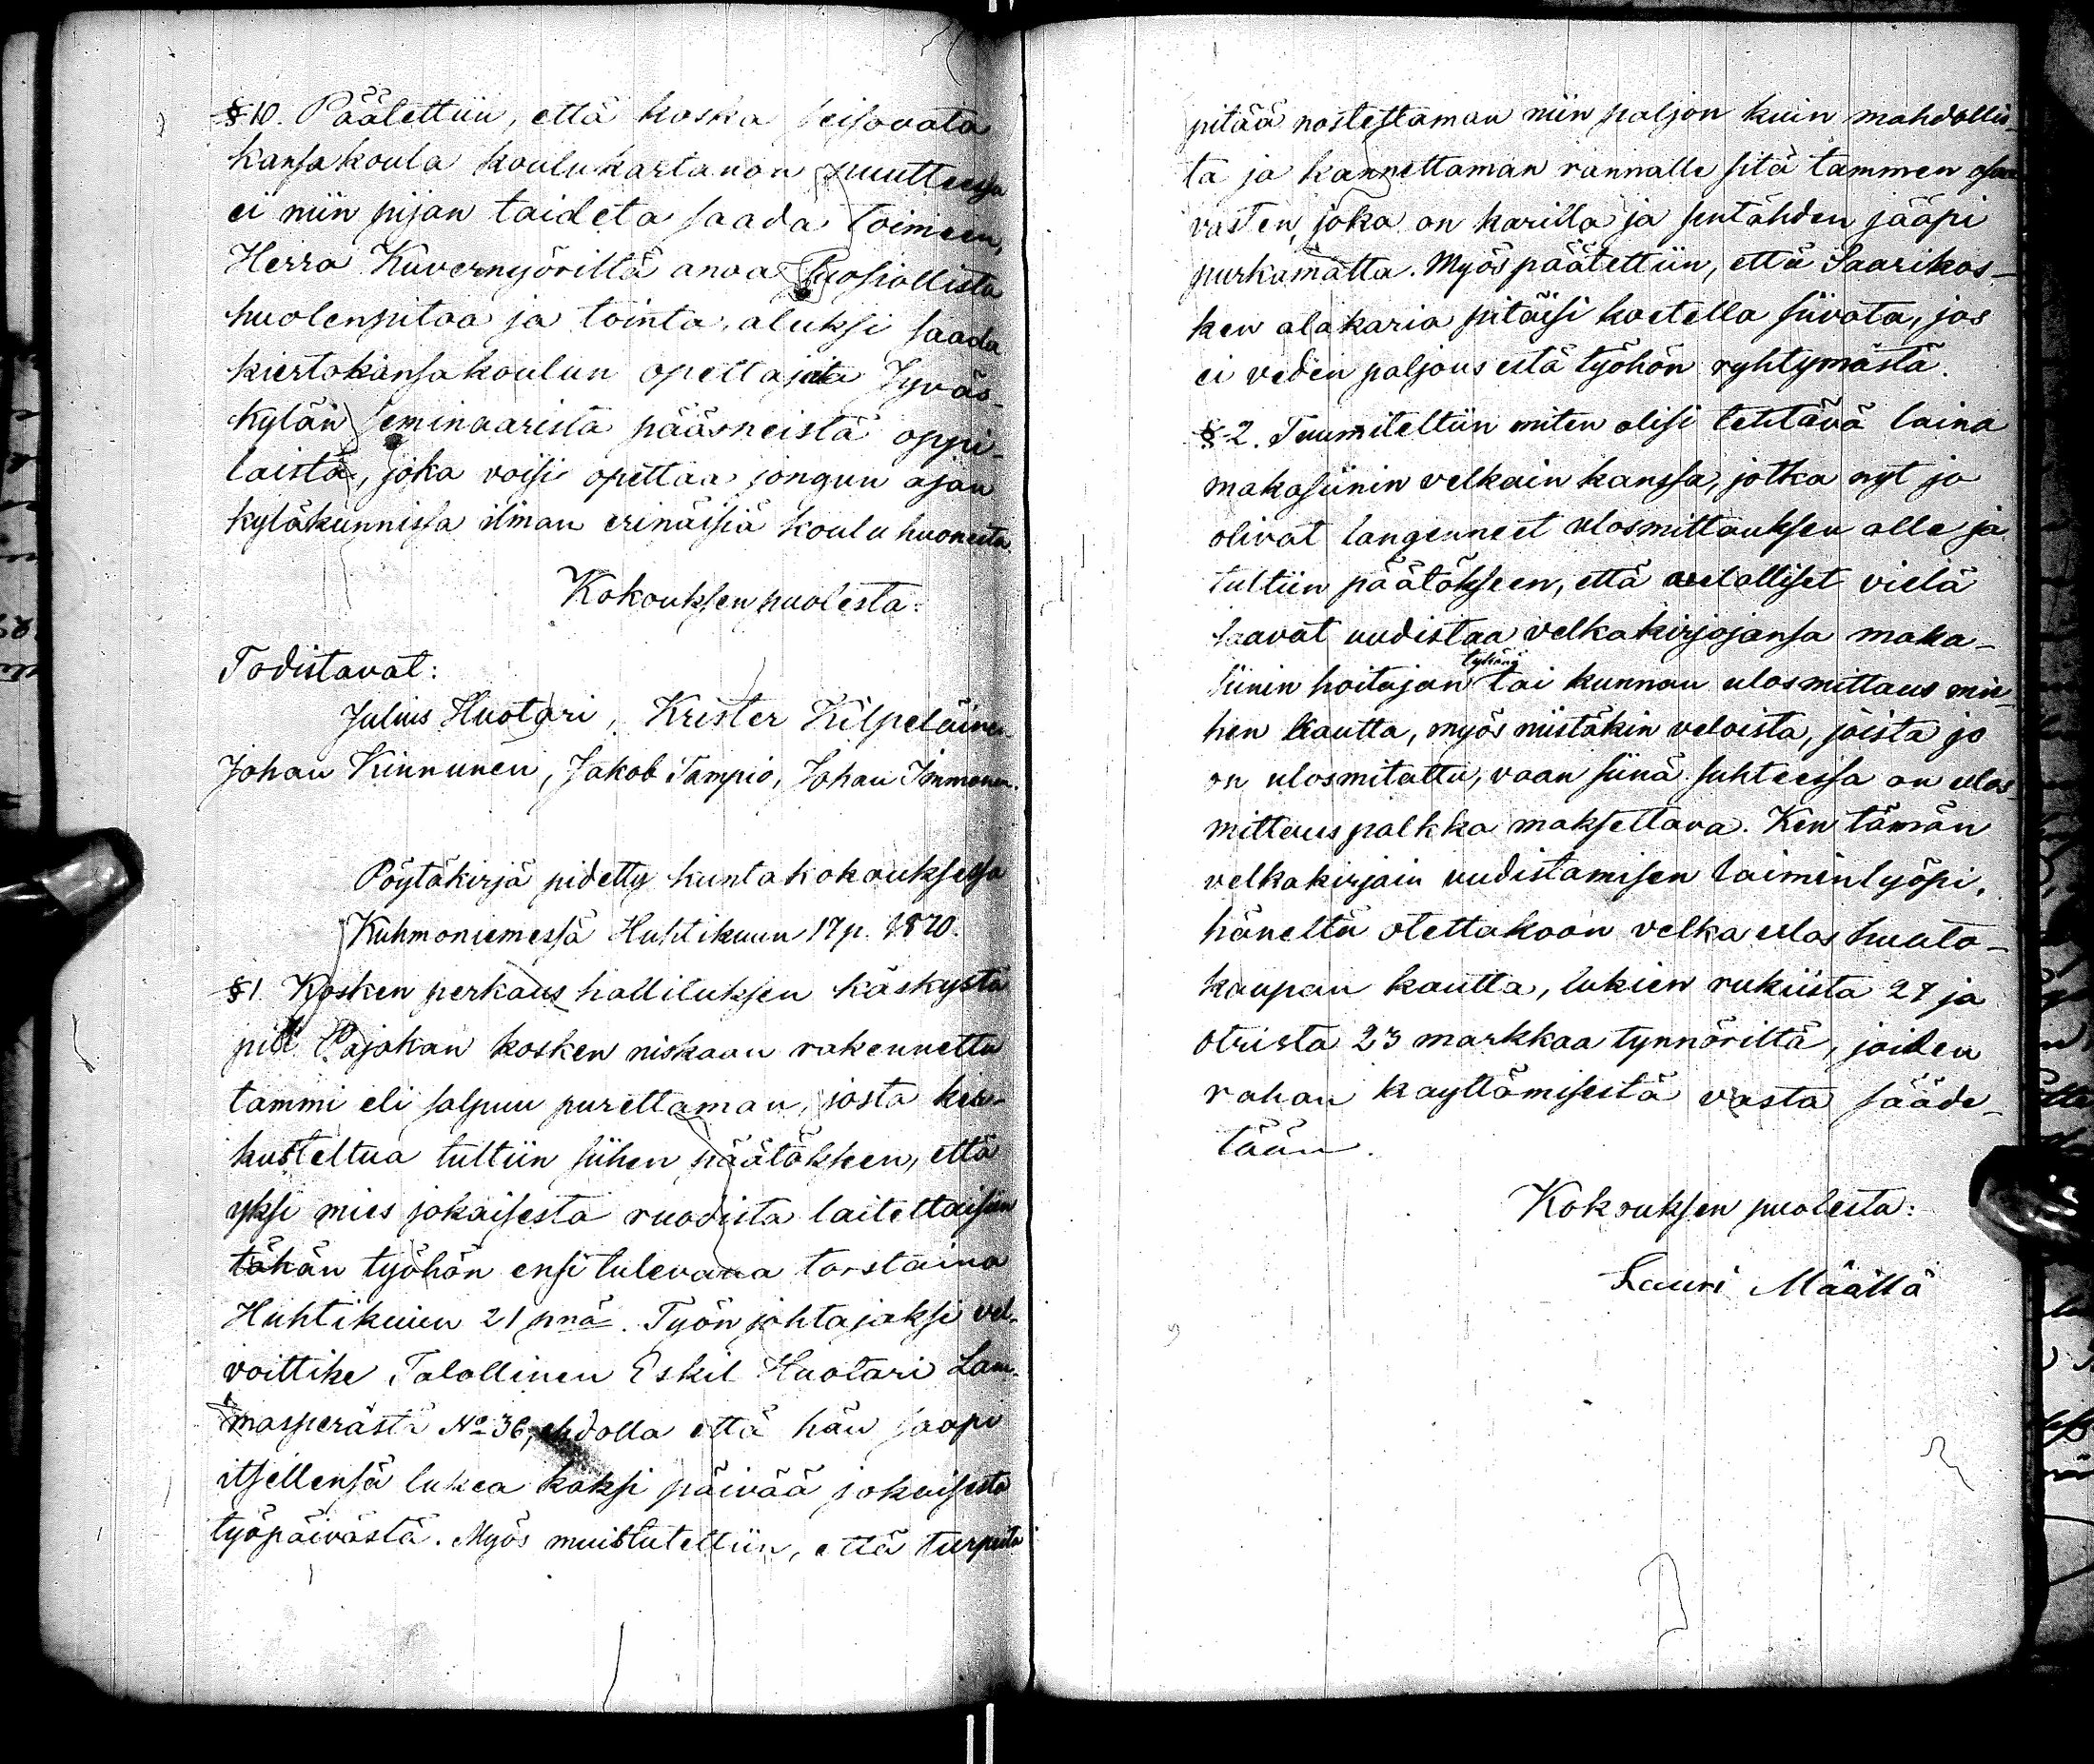 § 10. Päätettiin, että koska seisovata
kansakoula koulukartanon puutteessa
ei niin pijan taideta saada toimeen,
Herra Kuvernyöriltä anoa suosiollista
huolenpitoa ja tointa, aluksi saada
kiertokansakoulun opettajata Jyväs-
kylän seminaarista päässeistä oppi-
laista, joka voisi opettaa jongun ajan
kyläkunnissa ilman erinäisiä koulu huoneita.
Kokouksen puolesta:
Todistavat:
Julius Huotari, Krister Kilpeläinen
Johan Kinnunen, Jakob Tampio, Johan Immonen.
Pöytäkirja pidetty kuntakokouksessa
Kuhmoniemessä Huhtikuun 17 p. 1870.
§ 1. Kosken perkaus hallituksen käskystä
piti Pajakan kosken niskaan rakennettu
tammi eli salpuu purettaman, josta kes-
kusteltua tultiin siihen päätökseen, että
yksi mies jokaisesta ruodista laitettaisiin
tähän työhön ensi tulevana torstaina
Huhtikuun 21 pnä. Työn johtajaksi vel-
voittihe Talollinen Eskil Huotari Lam-
masperästä No 36, ehdolla että hän saapi
itsellensä lukea kaksi päivää jokaisesta
työpäivästä. Myös muistutettiin, että turpeita
pitää nostettaman niin paljon kuin mahdollis-
ta ja kannettaman rannalle sitä tammen osaa
vasten, joka on karilla ja sentähden jääpi
purkamatta. Myös päätettiin, että Saarikos-
ken alakaria pitäisi koetella siivota, jos
ei veden paljous estä työhön ryhtymästä.
§ 2. Tuumiteltiin miten olisi tehtävä laina
makasiinin velkain kanssa, jotka nyt jo
olivat langenneet ulosmittauksen alle ja
tultiin päätökseen, että velalliset vielä
saavat uudistaa velkakirjojansa maka-
siinin hoitajan tykönä tai kunnan ulosmittaus mie-
hen kautta, myös niistäkin veloista, joista jo
on ulosmitattu, vaan siinä suhteessa on ulos-
mittaus palkka maksettava. Ken tämän
velkakirjain uudistamisen laiminlyöpi,
häneltä otettakoon velka ulos huuto-
kaupan kautta, lukien rukiista 27 ja
otrista 23 markkaa tynnöriltä, joiden
rahan kayttämisestä vasta sääde-
tään.
Kokouksen puolesta:
Lauri Määttä